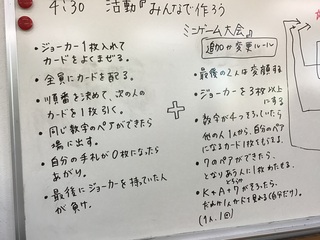 4:30 活動『みんなで作ろう
ミニゲーム大会』
・ジョーカー1枚入れて
カードをよくまぜる。
・全員にカードを配る。
・順番を決めて、次の人の
カードを1枚引く。
・同じ数字のペアができたら
場に出す。
・自分の手札が0枚になったら
あがり。
・最後にジョーカーを持っていた人
が負け。
+
追加or変更ルール
・最後の2人は変顔する
・ジョーカーを3枚以上
にする
・数字が4つそろいしたら
他の人1人から、自分のペア
になるカード1枚もらえる。
・7のペアができたら、
となりあう人に1枚わたせる。
・K+A+7がそろったら、
だれか1人から見れる(自分だけ)
(1人、1回)